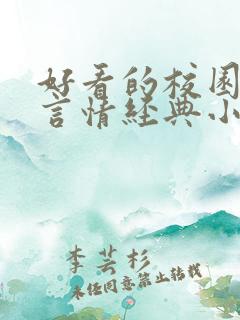 好看的校园
言情经典小
李芸杉
未经同意禁止转载